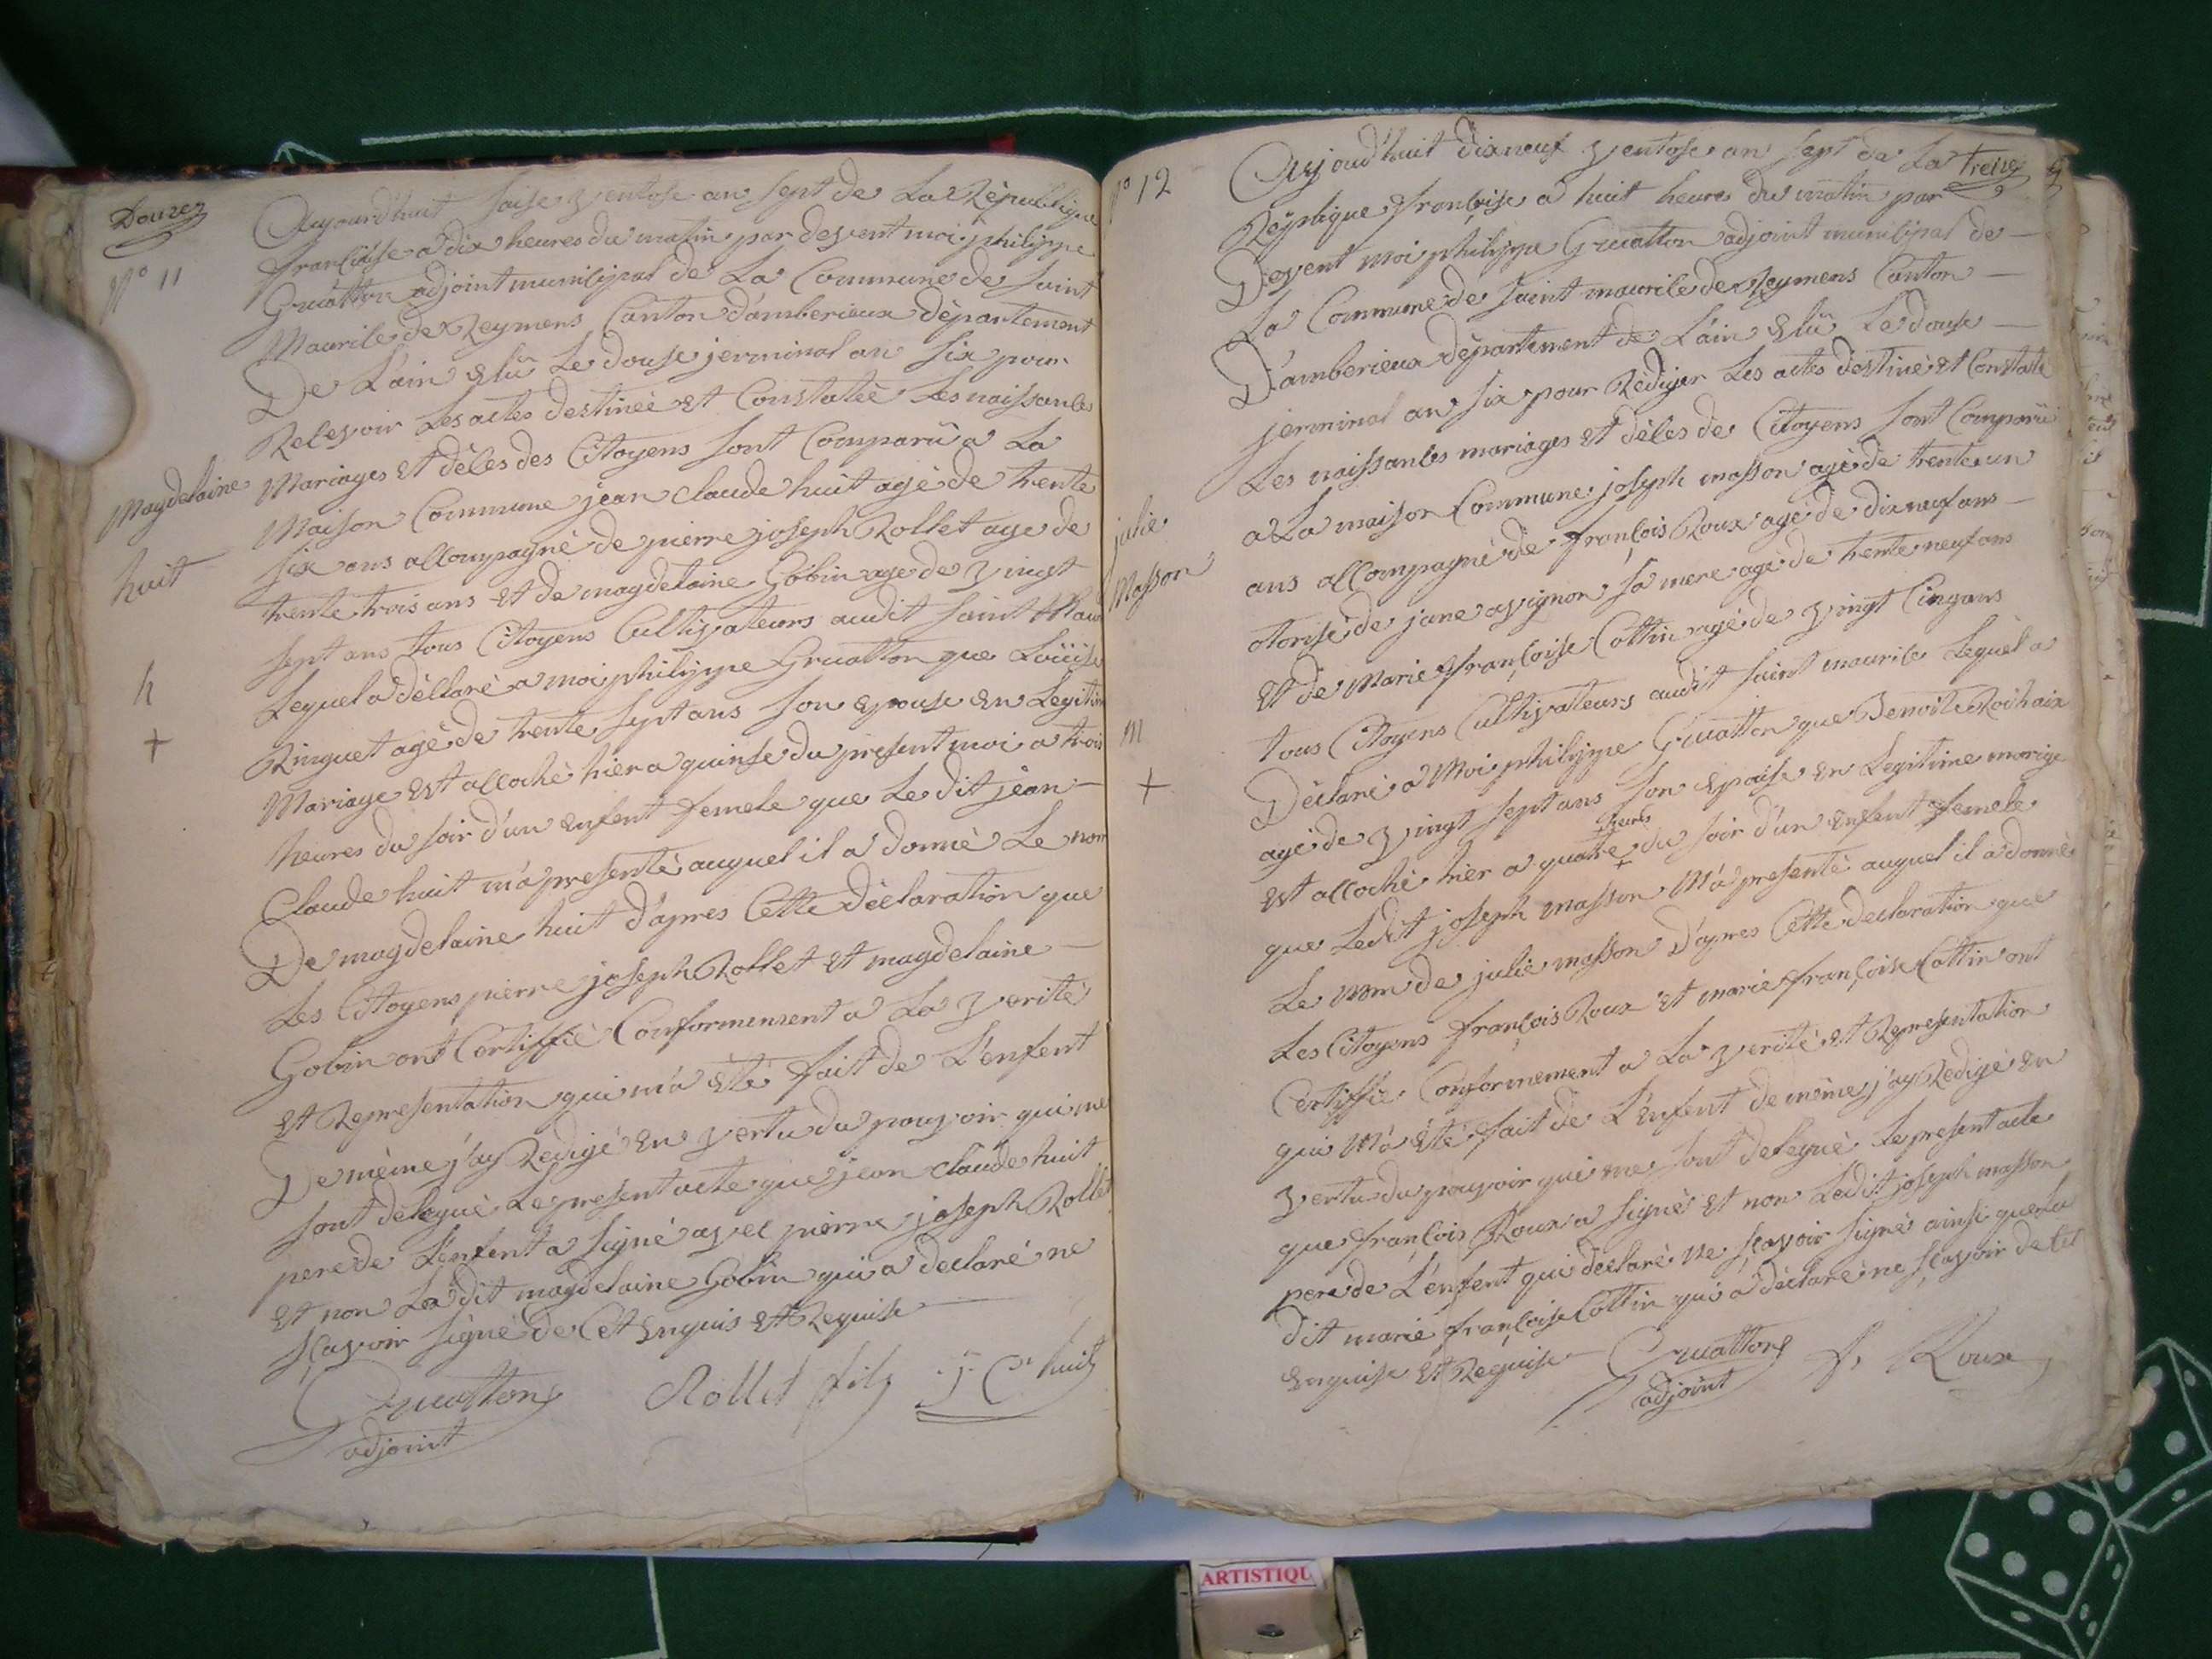 Douze
N° 11
Magdelaine
huit
h
+
Aujourdhuit saise ventose an sept de La République
françaisse a dix heures du matin par devent moi philippe
Gruatton adjoint municipal de La Commune de saint
Maurile de Reymens Canton d'amberieux département
De L'ain élü Le douse jerminal an six pour
Relevoir Les actes destineé et Constatée Les naissances
Mariages et déles des Citoyens sont Comparü a La
Maison Commune jean claude huit agé de trente
six ans accompagné de pierre joseph Rollet age de
trente trois ans et de magdelaine Gobin age de vingt
sept ans tous Citoyens Cultivateurs audit saint Mau
Lequel a déclaré a moi philippe Gruatton que Loüise
Ringuet agé de trente sept ans son epouse en Legitim
Mariage est accoché hier a quinse du present moi a trois
heures du soir d'un enfent femele que Le dit jéan
Claude huit m'a presenté auquel il a donné Le nom
De magdelaine huit d'apres Cette déclaration que
Les Citoyens pierre joseph Rollet et magdelaine
Gobin ont Certiffié Conformement a La verité
et Representation qui m'a été fait de L'enfent
De méme j'ay Redigé en vertu du pouvoir qui me
sont délegué Le present acte que jean claude huit
pere de L'enfent a signé avec pierre joseph Rollet
et non Ladit magdelaine Gobin qui a declaré ne
sçavoir signé de Cét enquis et Requise
Gruatton Rollet fils j C huit
adjoint
N° 12
treize
julie
Masson
m
+
Aujoudhuit dixneuf ventose an sept de La
Réplique françoise a huit heures du matin par
Devent moi philippe Gruatton adjoint municipal de
La Commune de saint maurile de Reymens Canton
D'amberieux département de L'ain élü Le douse
jerminal an six pour Rédiger Les actes destiné et Constaté
Les naissances mariages et déles des Citoyens sont Comparü
a La maison Commune joseph masson agé de trente un
ans accompagné de françois Roux agé de dixneuf ans
otorisé de jane avignon sa mere agé de trente neuf ans
et de Marie françoise Cottin agé de vingt Cinq ans
tous Citoyens Cultivateurs audit saint maurile Lequel a
Déclaré a Moi philippe Gruatton que Benoite Rochaix
agé de vingt sept ans son epouse en Legitime marige
heures
est accoché hier a quatre + du soir d'un enfent femele
que Ledit joseph masson M'a presenté auquel il a donné
Le Nom de julie masson D'apres Cette declaration que
Les Citoyens françois Roux et marie françoise Cottin ont
Certiffié Conformement a La verité et Representation
qui M'a été fait de L'enfent de méme j'ay Redigé en
vertu du pouvoir qui me sont delegué Le present acte
que françois Roux a signé et non Ledit joseph masson
pere de L'enfent qui declaré Ne sçavoir signé ainsi que La
dit marie françoise Cottin qui a déclaré ne sçavoir de Cet
enquise et Requise Gruatton f. Roux
adjoint
ARTISTIQU